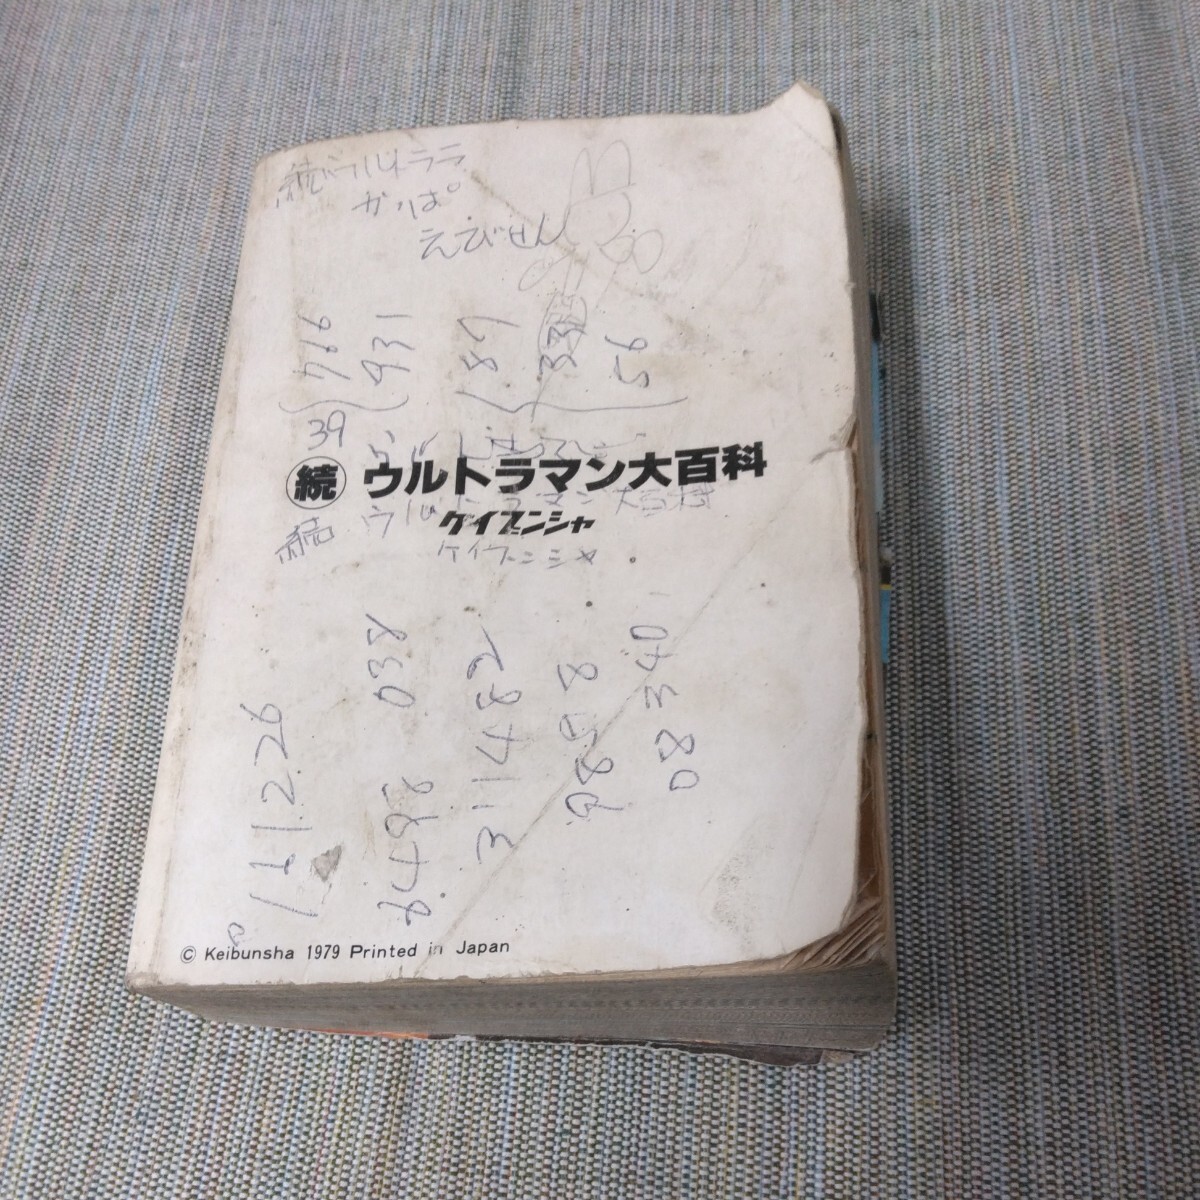 続ウルトララ
かっぱ
えびせん
766
931
89
33
56
39
続 ウルトラマン大百科
ケイブンシャ
続 ウルトラマン大百科
ケイブンシャ
11226
8498 038
311482
9858
08340
© Keibunsha 1979 Printed in Japan